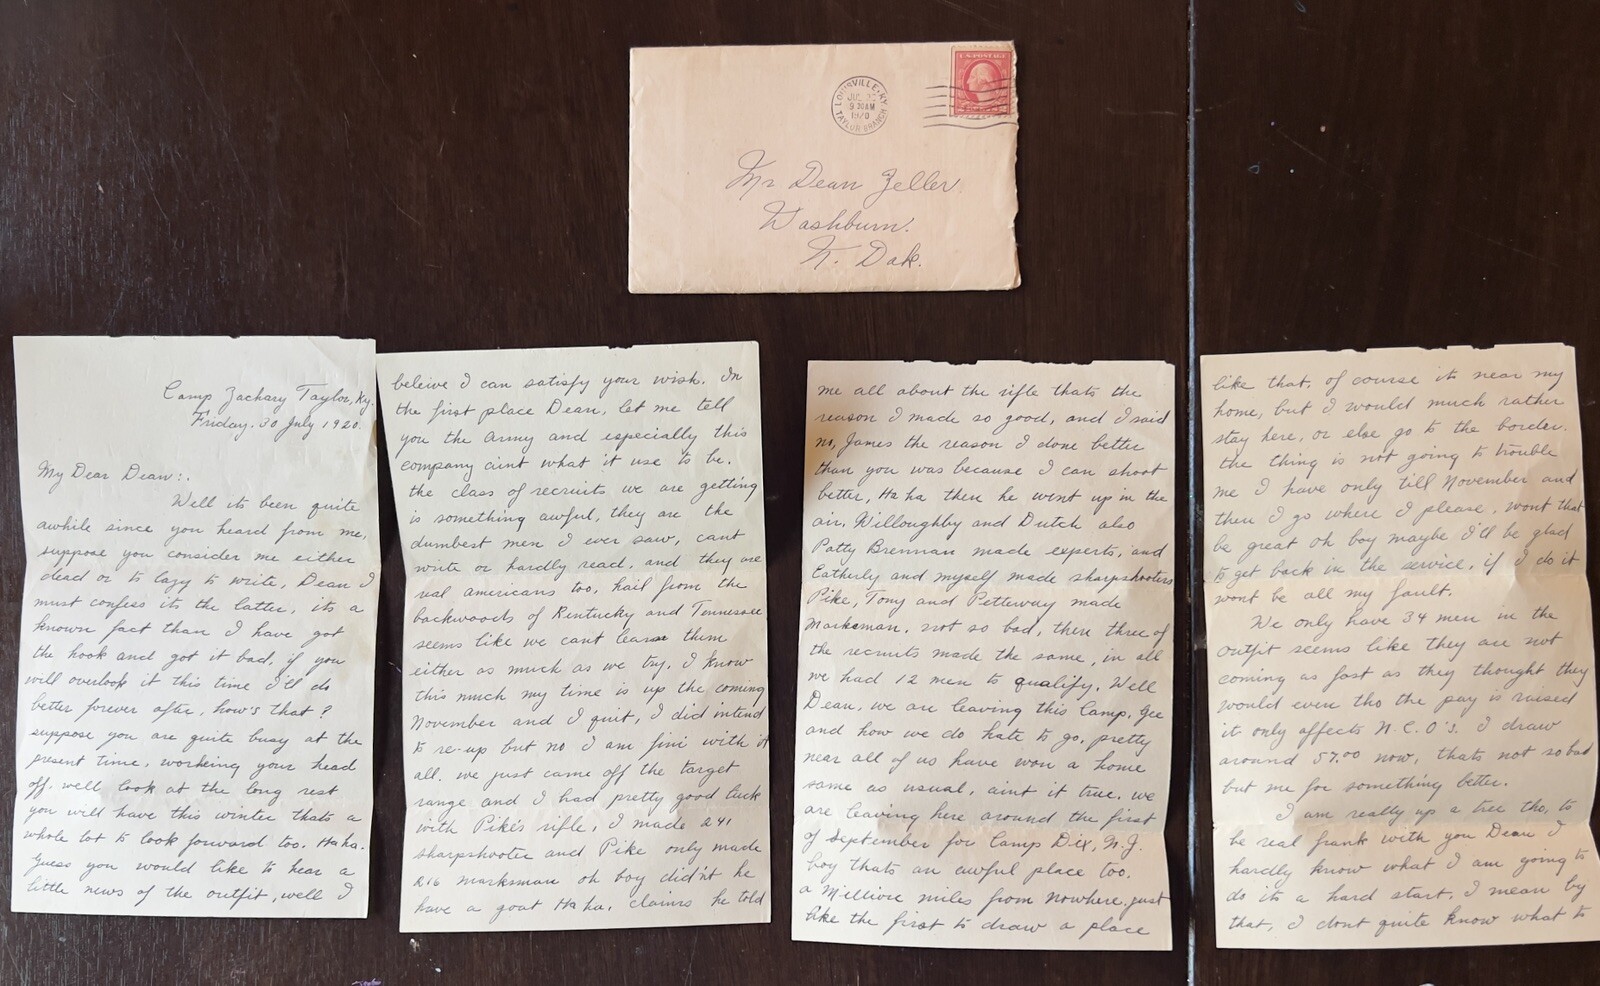 U.S. POSTAGE
LOUISVILLE, KY.
JUL 30
9 30AM
1920
TAYLOR BRANCH
Mr Dean Zeller
Washburn.
N. Dak.
Camp Zachary Taylor, Ky.
Friday. 30 July 1920.
My Dear Dean:.
Well its been quite
awhile since you heard from me,
suppose you consider me either
dead or to lazy to write, Dean I
must confess its the latter, its a
known fact than I have got
the hook and got it bad, if you
will overlook it this time I'll do
better forever after, how's that?
suppose you are quite busy at the
present time, working your head
off, well look at the long rest
you will have this winter thats a
whole lot to look forward too. Ha ha.
Guess you would like to hear a
little news of the outfit, well I
beleive I can satisfy your wish. In
the first place Dean, let me tell
you the Army and especially this
company aint what it use to be.
the class of recruits we are getting
is something awful, they are the
dumbest men I ever saw, cant
write or hardly read, and they are
real americans too, hail from the
backwoods of Kentucky and Tennessee
seems like we cant learn them
either as much as we try, I know
this much my time is up the coming
November and I quit, I did intend
to re-up but no I am fini with it
all. we just came off the target
range and I had pretty good luck
with Pike's rifle, I made a 241
sharpshooter and Pike only made
216 marksman oh boy did'nt he
have a goat Ha ha, claims he told
me all about the rifle thats the
reason I made so good, and I said
no, James the reason I done better
than you was because I can shoot
better, Ha ha then he went up in the
air. Willoughby and Dutch also
Patty Brennan made experts, and
Eatherly and myself made sharpshooters
Pike, Tony and Petterway made
Marksman, not so bad, then three of
the recruits made the same, in all
we had 12 men to qualify. Well
Dean, we are leaving this Camp, Gee
and how we do hate to go, pretty
near all of us have won a home
same as usual, aint it true. we
are leaving here around the first
of September for Camp Dix, N.J.
boy thats an awful place too.
a Million miles from nowhere, just
like the first to draw a place
like that, of course its near my
home, but I would much rather
stay here, or else go to the border.
the thing is not going to trouble
me I have only till November and
then I go where I please, wont that
be great oh boy maybe I'll be glad
to get back in the service, if I do it
wont be all my fault.
We only have 34 men in the
outfit seems like they are not
coming as fast as they thought they
would even tho the pay is raised
it only affects N.C.O's. I draw
around 57.00 now, thats not so bad
but me for something better.
I am really up a tree tho, to
be real frank with you Dean I
hardly know what I am going to
do its a hard start. I mean by
that, I dont quite know what to